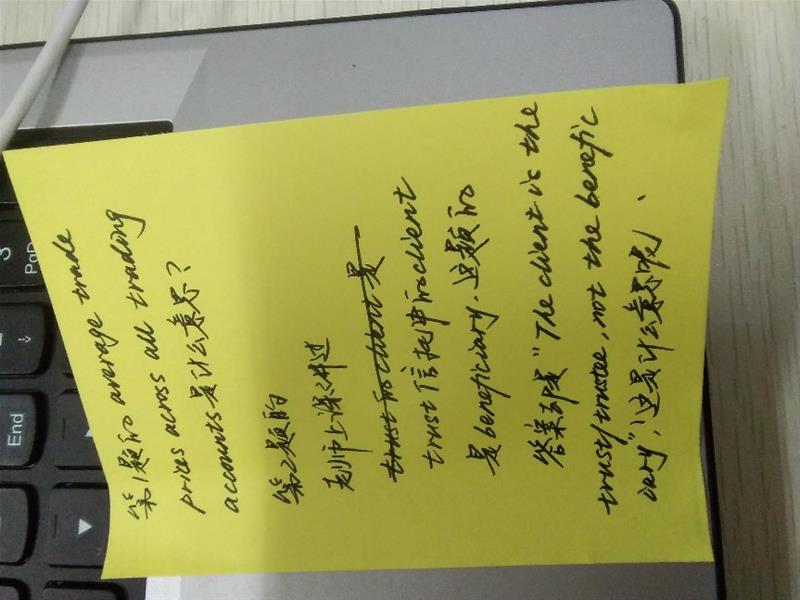 第1题的 average trade
prices across all trading
accounts是什么意思?
第2题的
老师上课讲过
trust的client是
trust信托中的client
是beneficiary,这题的
答案却是"The client is the
trust/trustee, not the benefic
iary",这是什么意思呢、
3
PgD
End